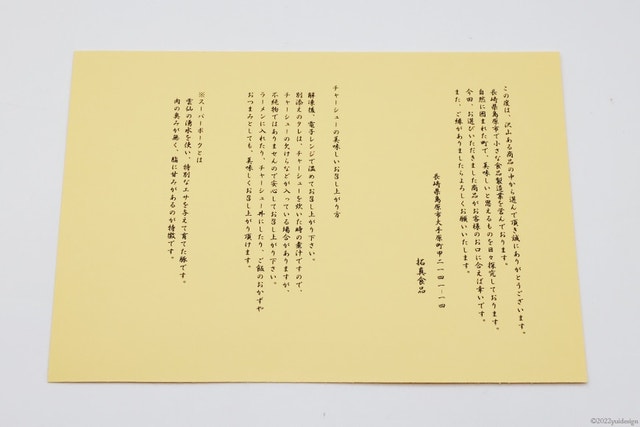 この度は、沢山ある商品の中から選んで頂き誠にありがとうございます。
長崎県島原市で小さな食品製造業を営んでおります。
自然に囲まれた町で、美味しいと思えるものを日々探究しております。
今回、お選びいただきました商品がお客様のお口に合えば幸いです。
また、ご縁がありましたらよろしくお願いいたします。
長崎県島原市大手原町甲二一四一-一四
拓真食品
チャーシューの美味しいお召し上がり方
解凍後、電子レンジで温めてお召し上がり下さい。
別添えのタレは、チャーシューを炊いた時の煮汁ですので、
チャーシューの欠けらなどが入っている場合がありますが、
不純物ではありませんので安心してお召し上がり下さい。
ラーメンに入れたり、チャーシュー丼にしたり、ご飯のおかずや
おつまみとしても、美味しくお召し上がり頂けます。
※スーパーポークとは
雲仙の湧水を使い、特別なエサを与えて育てた豚です。
肉の臭みが無く、脂に甘みがあるのが特徴です。
©2022yuidesign